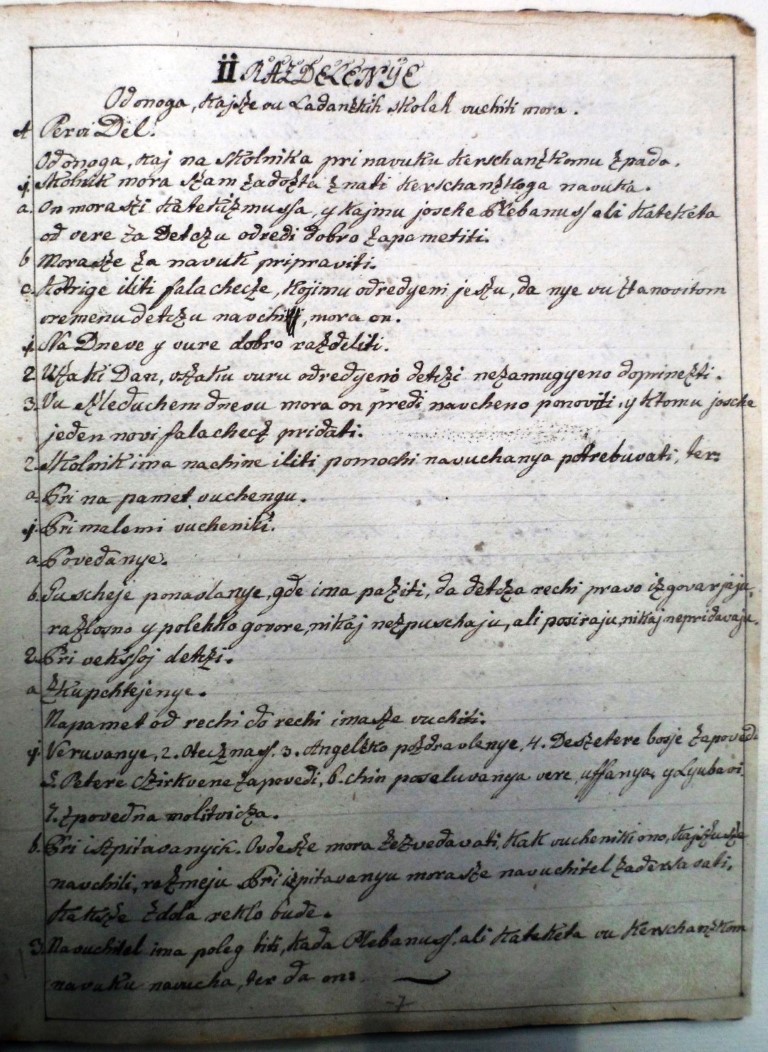 II RAZDELENYE
Od onoga, kajsze vu Ladanzkih skolah vuchiti mora.
A Pervi Del.
Od onoga, kaj na skolnika pri navuku kerschanzkomu zpada.
1. Skolnik mora szam zadozta znati kerschanzkoga navuka.
a. On mora szi katekizmussa, y kajmu joscke Plebanuss ali kateketa
od vere za Detczu odredi dobro zapametiti.
b Morasze za navuk pripraviti.
c. Kotrige iliti falachecze, kojimu odredyeni jeszu, da nye vu ztanovitom
vremenu detczu navchi, mora on.
1. Na Dneve y vure dobro razdeliti.
2. Vszaki Dan, vszaku vuru odredyeno detczi nezamugyeno doprinezti.
3. Vu szleduchem dnevu mora on predi navcheno ponoviti, y ktomu joscke
jeden novi falachecz pridati.
2. Skolnik ima nachine iliti pomochi navuchanya potrebuvati, ter:
a. Pri na pamet vuchengu.
1. Pri malemi vucheniki.
a. Povedanye.
b. Guscheje ponaslanye, gde ima paziti, da detcza rechi pravo izgovarjaju,
razlosno y polehko govore, nikaj nezpuschaju, ali posiraju, nikaj nepridavaju.
2. Pri vekssoj detczi.
a. Zkupchtejenye.
Napamet od rechi do rechi imasze vuchiti.
1. Veruvanye, 2. Otecz nass. 3. Angelzko pozdravlenye, 4. Deszetere bosje zapovedi
5. Petere czirkvene zapovedi, 6. chin poseluvanya vere, uffanya, y Lyubavi,
7. zpovedna molitvicza.
b. Pri izpitavanyih. Ovdesze mora zezvedavati, kak vucheniki ono, kajszusze
navchili, razmeju Pri izpitavanyu morasze navuchitel zadersavati,
kaksze zdola reklo bude.
3. Navuchitel ima poleg biti, kada Plebanuss, ali kateketa vu kerschanzkom
navuku navucha, ter da on:
-7-